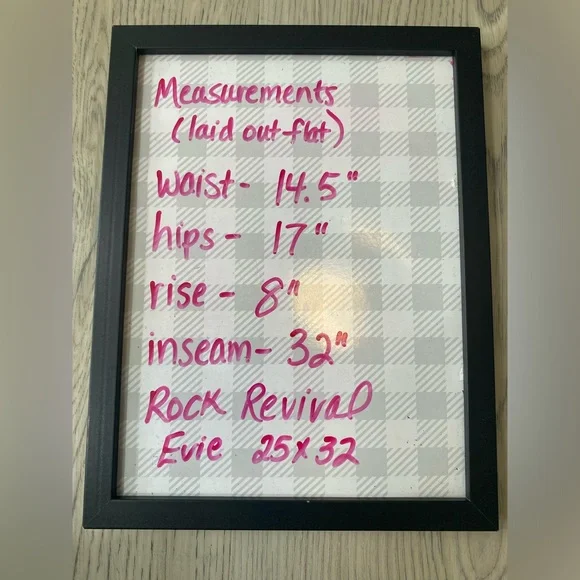 Measurements
(laid out flat)
waist- 14.5"
hips - 17"
rise - 8"
inseam- 32"
Rock Revival
Evie 25x32